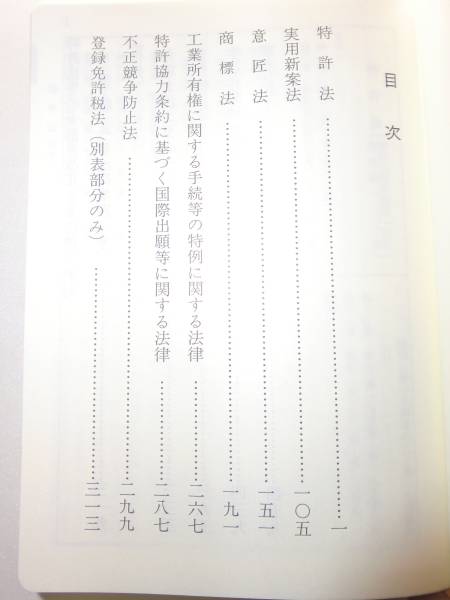 目次
特許法……………………………一
実用新案法……………………………一〇五
意匠法……………………………一五一
商標法……………………………一九一
工業所有権に関する手続等の特例に関する法律……………二六七
特許協力条約に基づく国際出願等に関する法律……………二八七
不正競争防止法……………………………二九九
登録免許税法（別表部分のみ）……………………………三一三